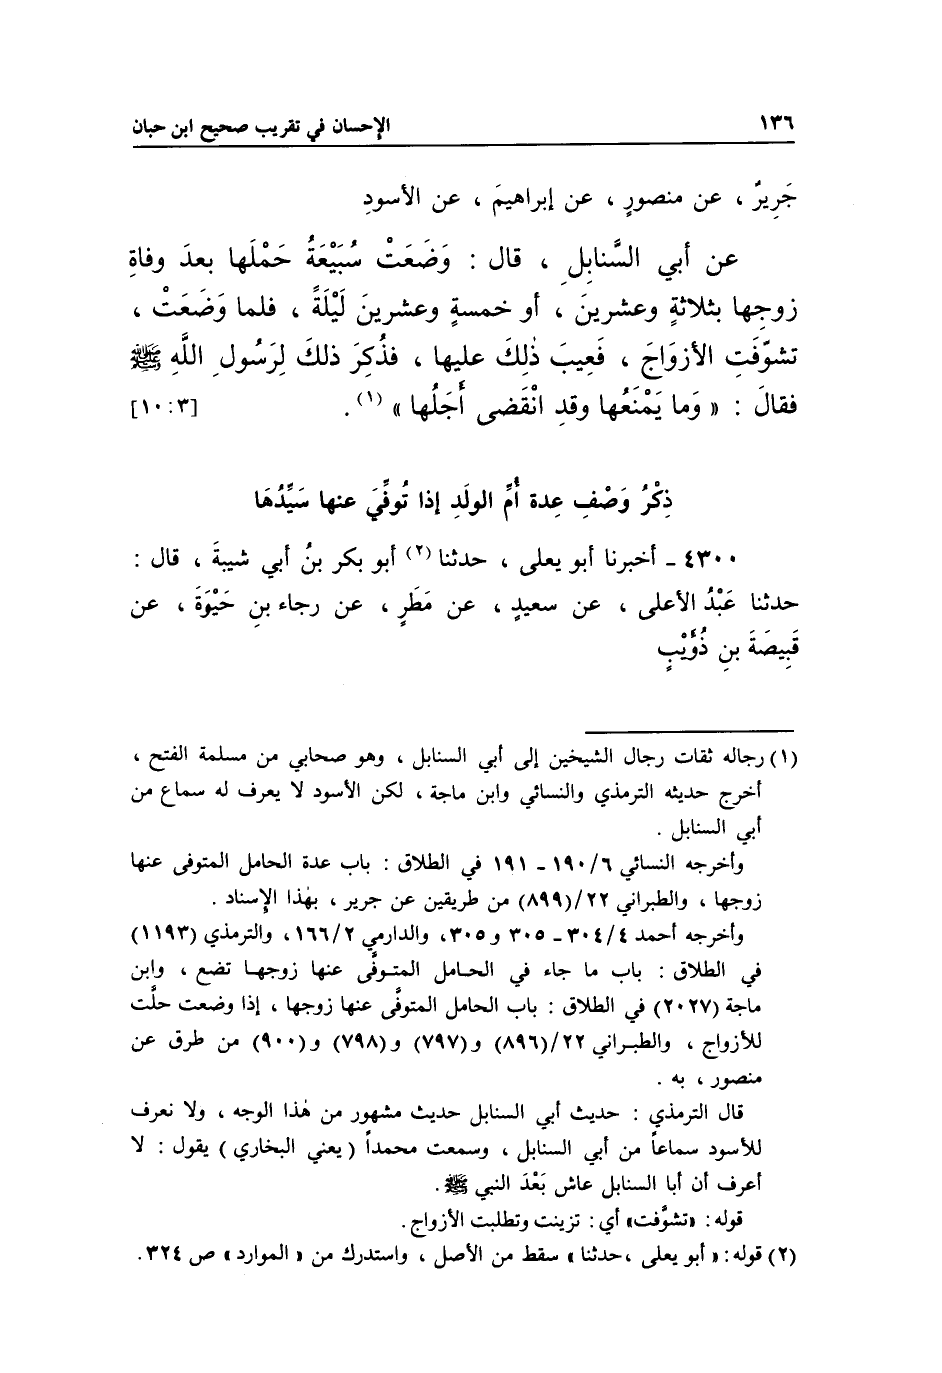 ١٣٦ الإحسان في تقريب صحيح ابن حبان
جَريرٌ ، عن منصورٍ ، عن إبراهيمَ ، عن الأسودِ
عن أبي السَّنابلِ ، قال : وَضَعَتْ سُبَيْعَةُ حَمْلَها بعدَ وفاةِ
زوجِها بثلاثةٍ وعشرينَ ، أو خمسةٍ وعشرينَ لَيْلَةً ، فلما وَضَعَتْ ،
تشوَّفَتِ الأزوَاجَ ، فَعِيبَ ذٰلِكَ عليها ، فذُكِرَ ذلكَ لِرَسُولِ اللَّهِ ﷺ
فقالَ : « وَما يَمْنَعُها وقدِ انْقَضى أَجَلُها » (١) . [٣: ١٠]
ذِكْرُ وَصْفِ عِدة أُمِّ الولَدِ إذا تُوفِّيَ عنها سَيِّدُهَا
٤٣٠٠ ـ أخبرنا أبو يعلى ، حدثنا (٢) أبو بكر بنُ أبي شيبةَ ، قال :
حدثنا عَبْدُ الأعلى ، عن سعيدٍ ، عن مَطَرٍ ، عن رجاء بنِ حَيْوَةَ ، عن
قَبِيصَةَ بنِ ذُؤَيْبٍ
(١) رجاله ثقات رجال الشيخين إلى أبي السنابل ، وهو صحابي من مسلمة الفتح ،
أخرج حديثه الترمذي والنسائي وابن ماجة ، لكن الأسود لا يعرف له سماع من
أبي السنابل .
وأخرجه النسائي ١٩٠/٦ ـ ١٩١ في الطلاق : باب عدة الحامل المتوفى عنها
زوجها ، والطبراني ٢٢/(٨٩٩) من طريقين عن جرير ، بهٰذا الإسناد .
وأخرجه أحمد ٣٠٤/٤ ـ ٣٠٥ و٣٠٥، والدارمي ١٦٦/٢، والترمذي (١١٩٣)
في الطلاق : باب ما جاء في الحامل المتوفَّى عنها زوجها تضع ، وابن
ماجة (٢٠٢٧) في الطلاق : باب الحامل المتوفَّى عنها زوجها ، إذا وضعت حلَّت
للأزواج ، والطبراني ٢٢/(٨٩٦) و(٧٩٧) و(٧٩٨) و(٩٠٠) من طرق عن
منصور ، به .
قال الترمذي : حديث أبي السنابل حديث مشهور من هٰذا الوجه ، ولا نعرف
للأسود سماعاً من أبي السنابل ، وسمعت محمداً ( يعني البخاري ) يقول : لا
أعرف أن أبا السنابل عاش بَعْدَ النبي ﷺ.
قوله: «تشوَّفت» أي: تزينت وتطلبت الأزواج.
(٢) قوله: « أبو يعلى ،حدثنا » سقط من الأصل ، واستدرك من « الموارد » ص ٣٢٤.